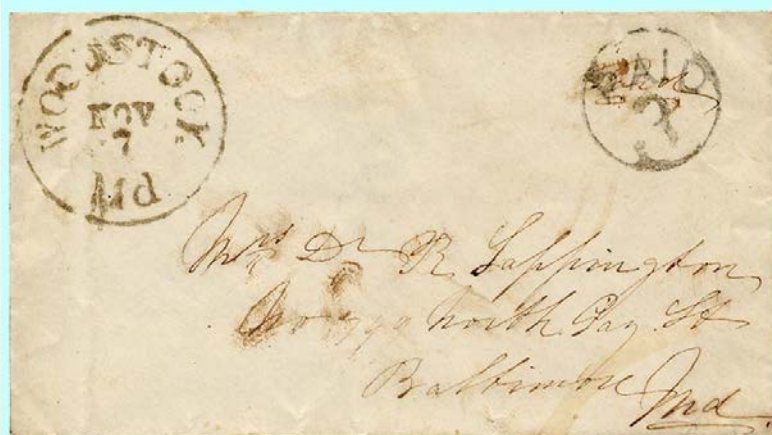 WOODSTOCK
NOV
7
Md
PAID
3
Paid
Mrs Dr R Sappington
No North Gay St
Baltimore Md